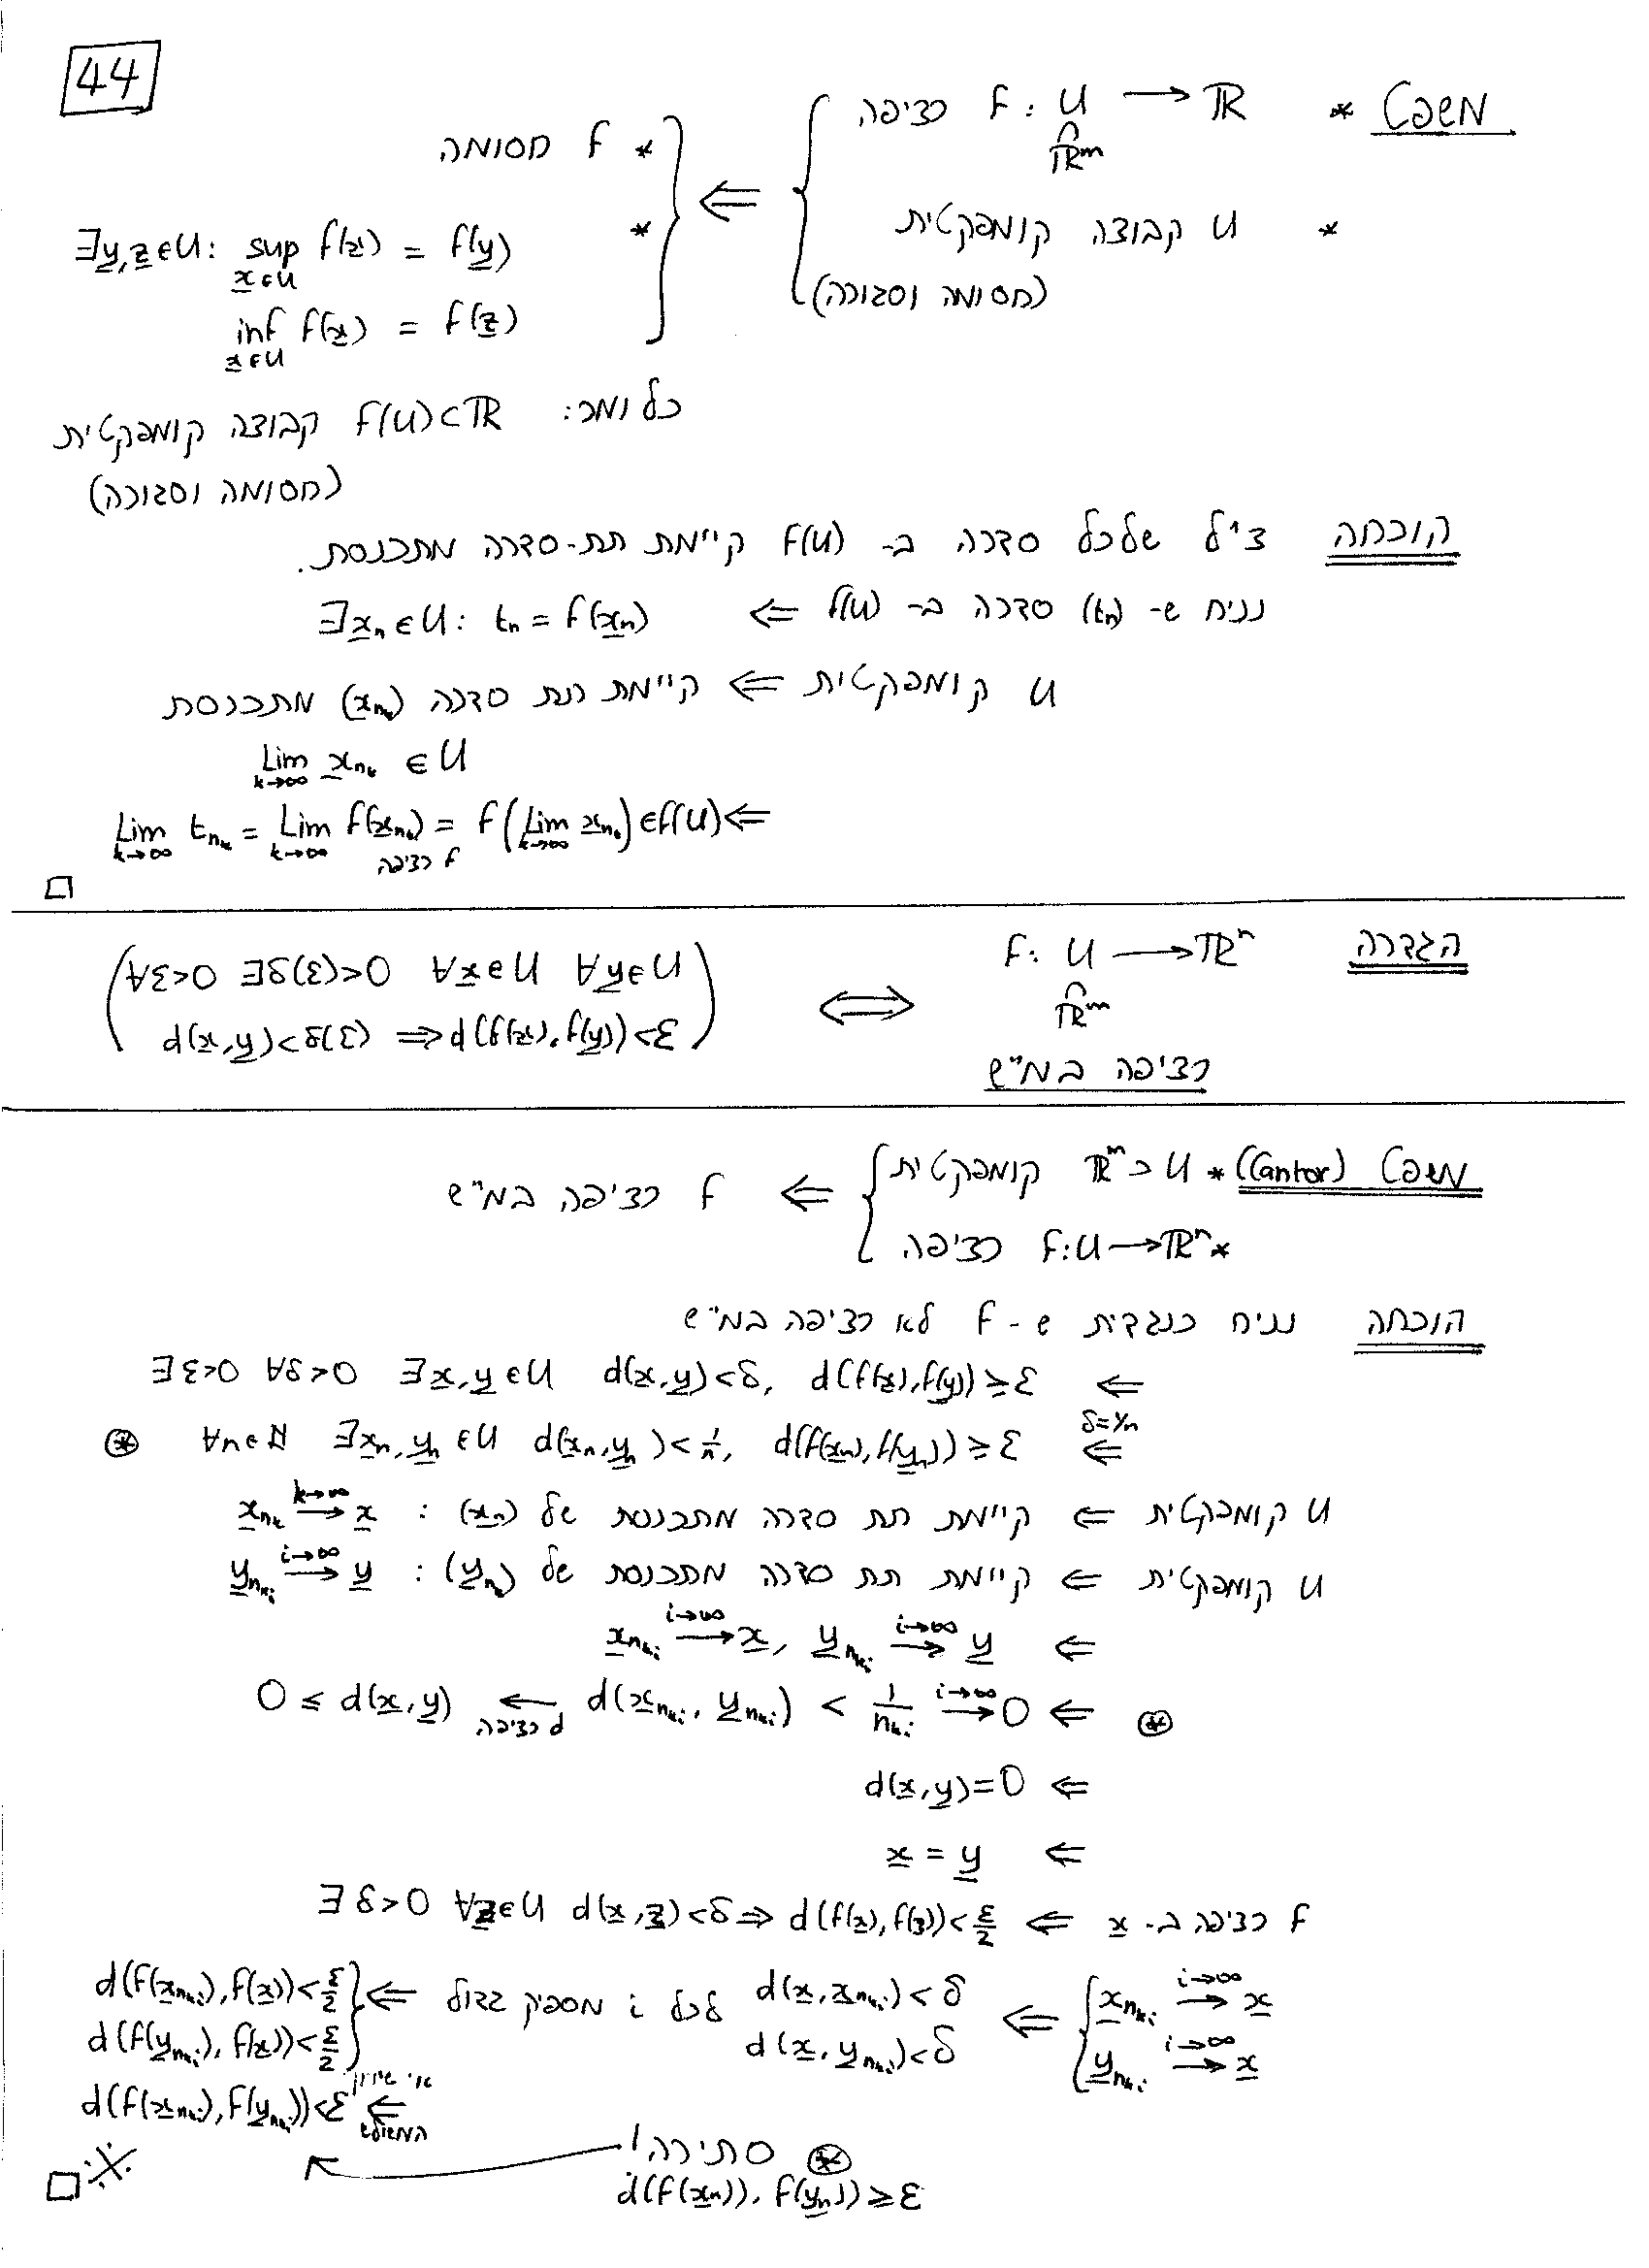 44
משפט * f: U → ℝ רציפה
∩
ℝᵐ
* U קבוצה קומפקטית
(חסומה וסגורה)
⇐
* f חסומה
* ∃y,z∈U: sup f(x) = f(y)
x∈U
inf f(x) = f(z)
x∈U
כלומר: f(U)⊂ℝ קבוצה קומפקטית
(חסומה וסגורה)
הוכחה צ"ל שלכל סדרה ב- f(U) קיימת תת-סדרה מתכנסת.
נניח ש- (tₙ) סדרה ב- f(U) ⇐ ∃xₙ∈U: tₙ = f(xₙ)
U קומפקטית ⇐ קיימת תת סדרה (x_{n_k}) מתכנסת
lim_{k→∞} x_{n_k} ∈ U
⇐ lim_{k→∞} t_{n_k} = lim_{k→∞} f(x_{n_k}) = f(lim_{k→∞} x_{n_k}) ∈ f(U)
f רציפה
□
הגדרה f: U → ℝⁿ ⟺ (∀ε>0 ∃δ(ε)>0 ∀x∈U ∀y∈U
∩
ℝᵐ d(x,y)<δ(ε) ⇒ d(f(x),f(y))<ε)
רציפה במ"ש
משפט (Cantor) * U ⊂ ℝᵐ קומפקטית
* f:U→ℝⁿ רציפה
⇐ f רציפה במ"ש
הוכחה נניח כנגדית ש- f לא רציפה במ"ש
⇐ ∃ε>0 ∀δ>0 ∃x,y∈U d(x,y)<δ, d(f(x),f(y))≥ε
δ=1/n
⇐ ∀n∈ℕ ∃xₙ,yₙ∈U d(xₙ,yₙ)<1/n, d(f(xₙ),f(yₙ))≥ε ⊛
U קומפקטית ⇐ קיימת תת סדרה מתכנסת של (xₙ) : x_{n_k} →^{k→∞} x
U קומפקטית ⇐ קיימת תת סדרה מתכנסת של (yₙ) : y_{n_{k_i}} →^{i→∞} y
⇐ x_{n_{k_i}} →^{i→∞} x, y_{n_{k_i}} →^{i→∞} y
⊛ ⇐ 0 ≤ d(x,y) ← d(x_{n_{k_i}}, y_{n_{k_i}}) < 1/n_{k_i} →^{i→∞} 0
d רציפה
⇐ d(x,y)=0
⇐ x = y
f רציפה ב- x ⇐ ∃δ>0 ∀z∈U d(x,z)<δ ⇒ d(f(x),f(z))<ε/2
{ x_{n_{k_i}} →^{i→∞} x
y_{n_{k_i}} →^{i→∞} x
⇐ d(x,x_{n_{k_i}})<δ
d(x,y_{n_{k_i}})<δ
לכל i מספיק גדול
⇐ d(f(x_{n_{k_i}}),f(x))<ε/2
d(f(y_{n_{k_i}}),f(x))<ε/2
אי שוויון
⇐ d(f(x_{n_{k_i}}),f(y_{n_{k_i}}))<ε
המשולש
⊛ סתירה!
d(f(xₙ)),f(yₙ))≥ε
□ ※